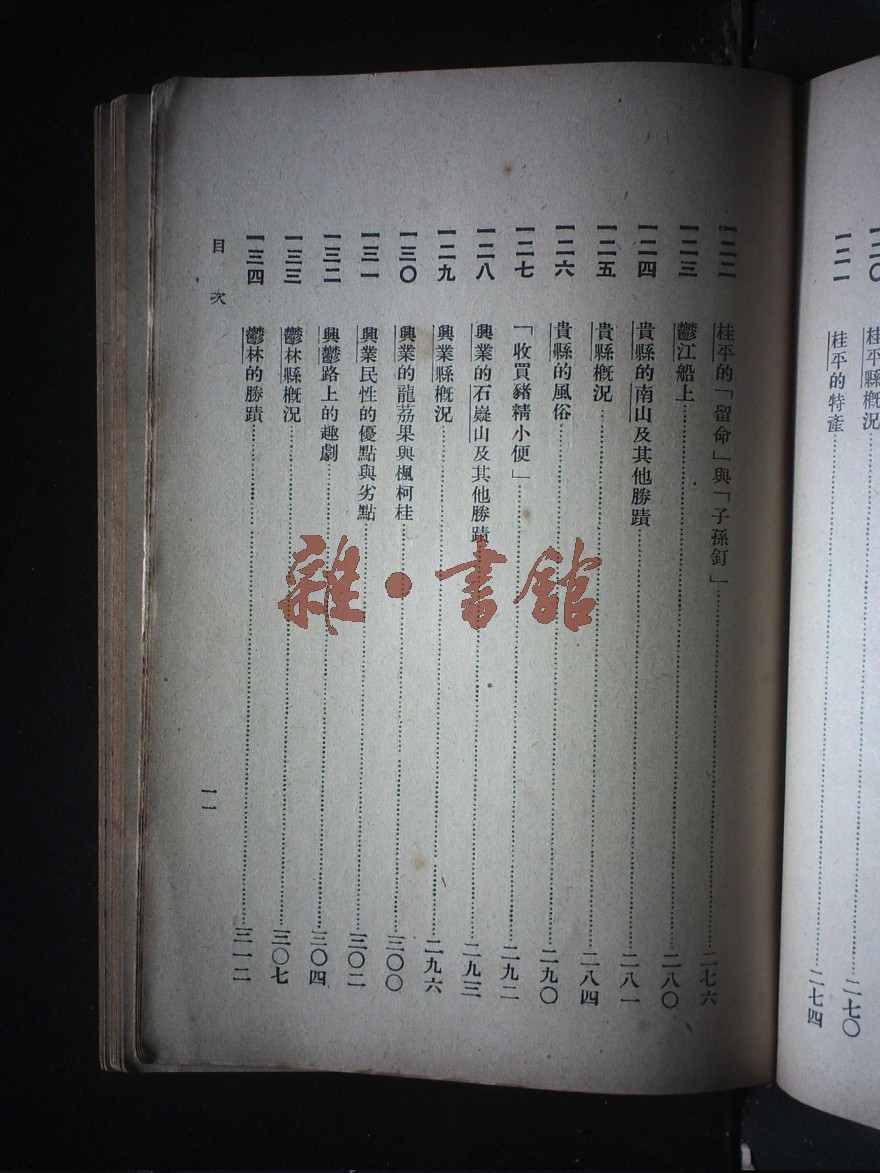 一二〇 桂平縣概況……二七〇
一二一 桂平的特產……二七四
一二二 桂平的「留命」與「子孫釘」……二七六
一二三 鬱江船上……二八〇
一二四 貴縣的南山及其他勝蹟……二八一
一二五 貴縣概況……二八四
一二六 貴縣的風俗……二九〇
一二七 「收買豬精小便」……二九二
一二八 興業的石嶷山及其他勝蹟……二九三
一二九 興業縣概況……二九六
一三〇 興業的龍荔果與楓柯桂……三〇〇
一三一 興業民性的優點與劣點……三〇二
一三二 興鬱路上的趣劇……三〇四
一三三 鬱林縣概況……三〇七
一三四 鬱林的勝蹟……三一二
目次 一一
雜·書館